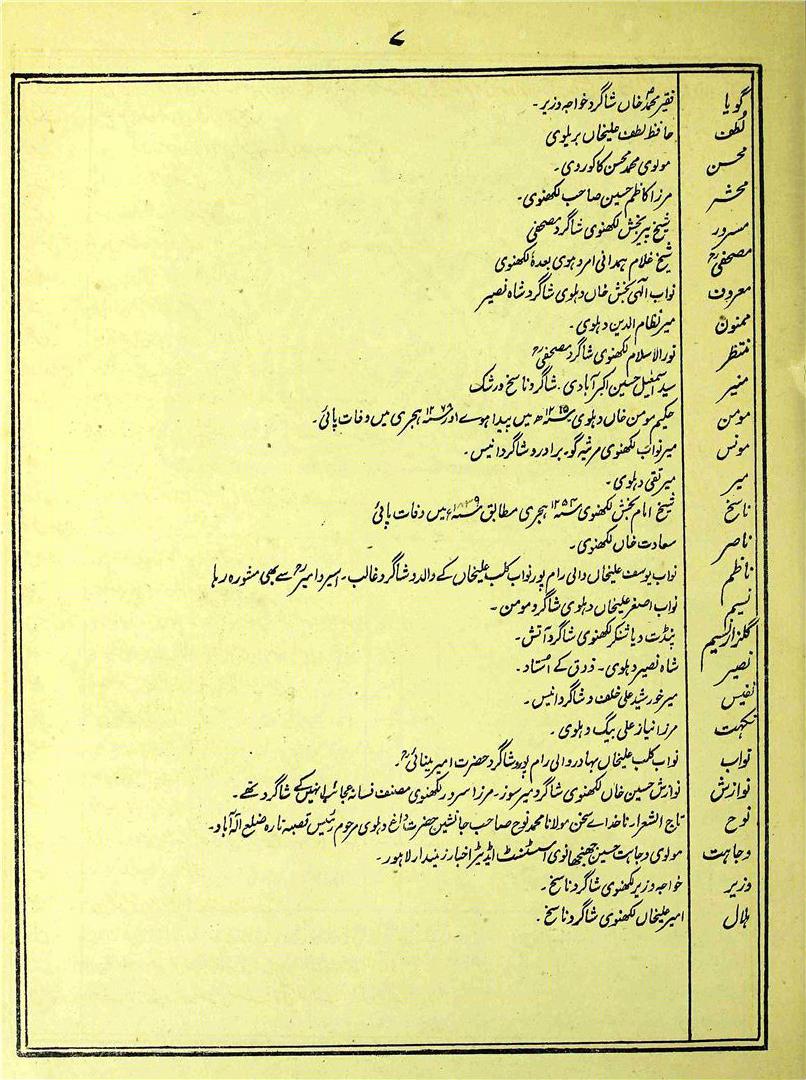 ۷
گویا فقیر محمد خاں شاگرد خواجہ وزیر۔
لطف حافظ لطف علیخاں بریلوی
محسن مولوی محمد محسن کاکوروی۔
محشر مرزا کاظم حسین صاحب لکھنوی۔
مسرور شیخ پیر بخش لکھنوی شاگرد مصحفی
مصحفیؒ شیخ غلام ہمدانی امروہوی بعدہٗ لکھنوی
معروف نواب الٰہی بخش خاں دہلوی شاگرد شاہ نصیر
ممنون میر نظام الدین دہلوی۔
منتظر نور الاسلام لکھنوی شاگرد مصحفیؒ
منیر سید اسمٰعیل حسین اکبر آبادی۔ شاگرد ناسخ و رشک
مومن حکیم مومن خاں دہلوی ۱۲۱۵ھ میں پیدا ہوے اور ۱۲۶۸ ہجری میں وفات پائی۔
مونس میر نواب لکھنوی مرثیہ گو۔ برادر و شاگرد انیس۔
میر میر تقی دہلوی۔
ناسخ شیخ امام بخش لکھنوی ۱۲۵۴ ہجری مطابق ۱۸۳۹ء میں وفات پائی
ناصر سعادت خاں لکھنوی۔
ناظم نواب یوسف علیخاں والی رام پور نواب کلب علیخاں کے والد و شاگرد غالب۔ اسیر و امیرؒ سے بھی مشورہ رہا
نسیم نواب اصغر علیخاں دہلوی شاگرد مومن۔
گلزار نسیم پنڈت دیا شنکر لکھنوی شاگرد آتش۔
نصیر شاہ نصیر دہلوی۔ ذوق کے استاد۔
نفیس میر خورشید علی خلف و شاگرد انیس۔
نکہت مرزا نیاز علی بیگ دہلوی۔
نواب نواب کلب علیخاں بہادر والی رام پور و شاگرد حضرت امیر مینائیؒ۔
نوازش نوازش حسین خاں لکھنوی شاگرد میر سوز۔ مرزا سرور لکھنوی مصنف فسانہ عجائب انہیں کے شاگرد تھے۔
نوح تاج الشعرا ناخدائے سخن مولانا محمد نوح صاحب جانشین حضرت داغ دہلوی مرحوم رئیس قصبہ نارہ ضلع الہ آباد۔
وجاہت مولوی وجاہت حسین جھنجھانوی اسسٹنٹ ایڈیٹر اخبار زمیندار لاہور۔
وزیر خواجہ وزیر لکھنوی شاگرد ناسخ۔
ہلال امیر علیخاں لکھنوی شاگرد ناسخ۔